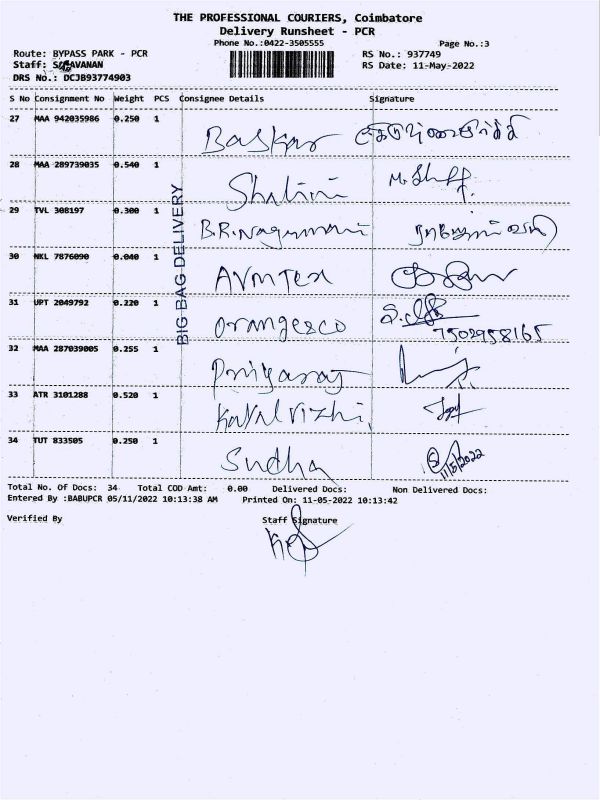 THE PROFESSIONAL COURIERS, Coimbatore
Delivery Runsheet - PCR
Phone No.:0422-3505555
Page No.:3
Route: BYPASS PARK - PCR
RS No.: 937749
Staff: SARAVANAN
RS Date: 11-May-2022
DRS No.: DCJB93774903
S No Consignment No Weight PCS Consignee Details Signature
27 MAA 942035986 0.250 1 Baskar
28 MAA 289739035 0.540 1 Shalini
29 TVL 308197 0.300 1 B.R.Nagumani
30 NKL 7876090 0.040 1 AVM Tex
31 UPT 2049792 0.220 1 Orangesco
7502958165
32 MAA 287039005 0.255 1 Priyaraj
33 ATR 3101288 0.520 1 Kayalvizhi
34 TUT 833505 0.250 1 Sudha 11/5/2022
BIG BAG DELIVERY
Total No. Of Docs: 34 Total COD Amt: 0.00 Delivered Docs: Non Delivered Docs:
Entered By :BABUPCR 05/11/2022 10:13:38 AM Printed On: 11-05-2022 10:13:42
Verified By Staff Signature